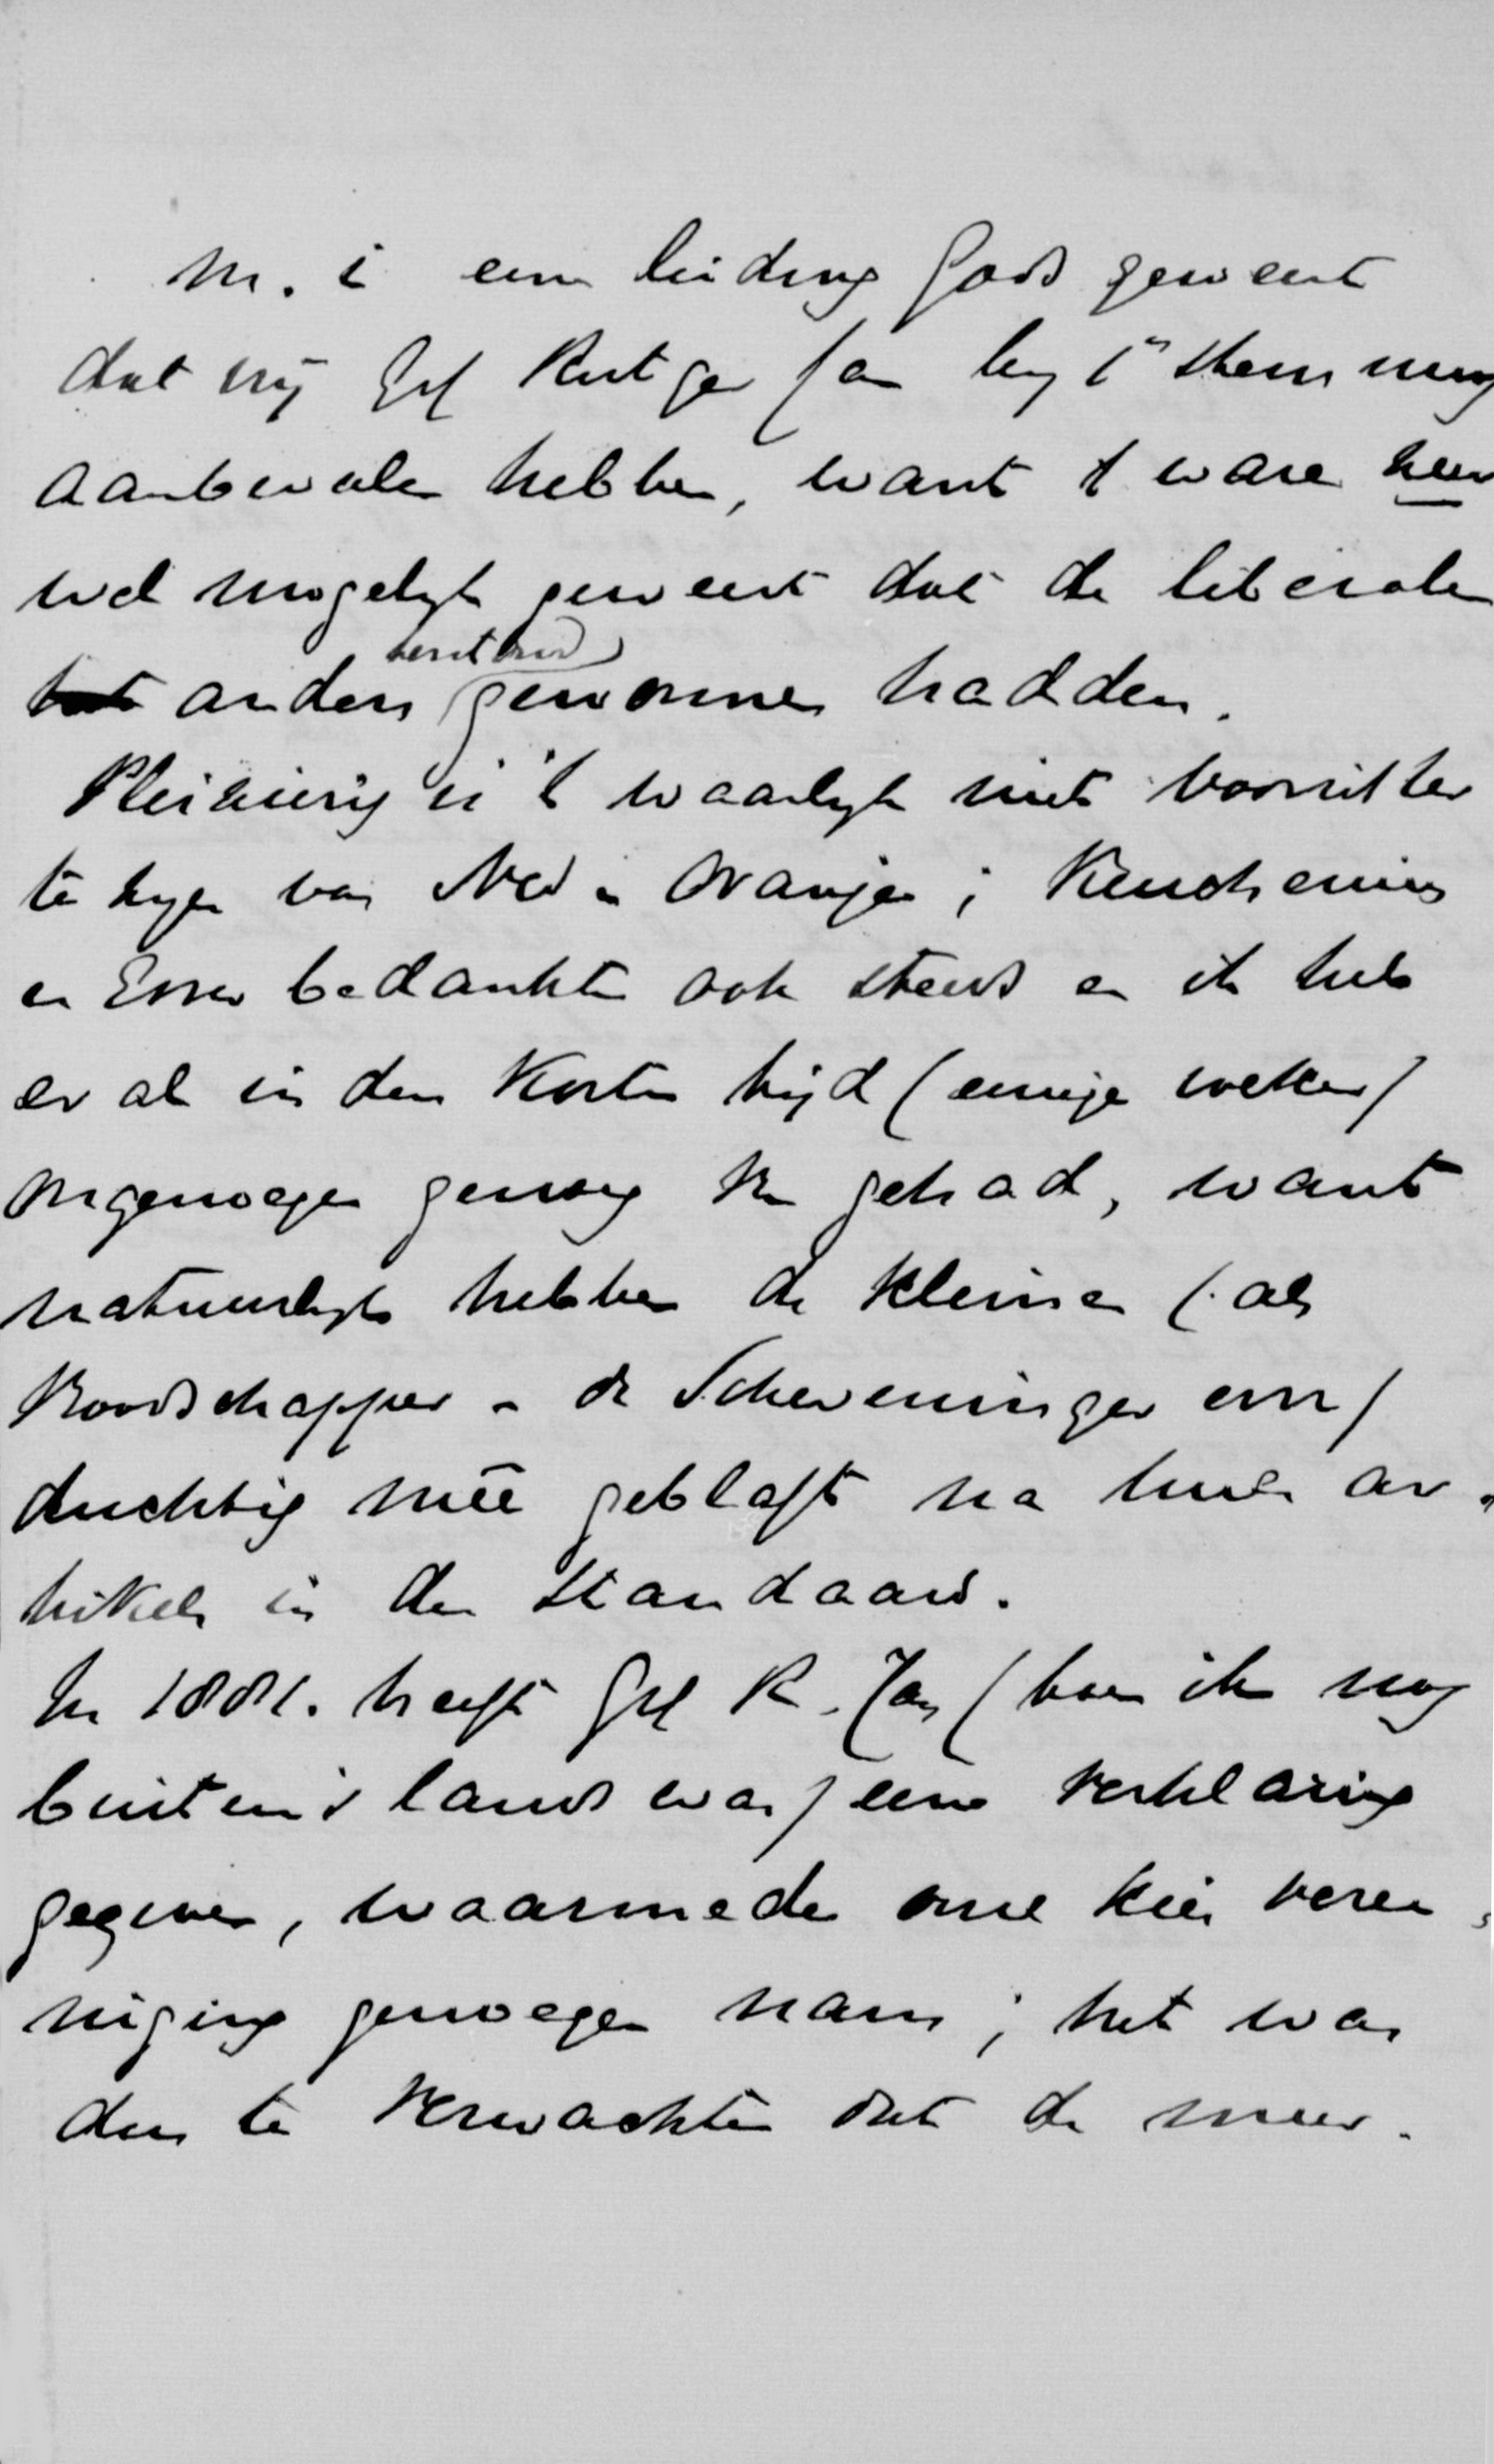 m. i een leiding Gods geweest
dat wij Jhr Rutger Jan by 1e stemming
aanbevolen hebben, want 't ware zeer
wel mogelyk geweest dat de liberalen
anders terstond gewonnen hadden.
Pleizierig is 't waarlyk niet voorzitter
te zyn van Ned. en Oranje; Keuchenius
en Esser bedankten ook steeds en ik heb
er al in den korten tijd (eenige weken)
ongenoegen genoeg van gehad, want
natuurlyk hebben de kleinen (als
Boodschapper en de Scheveninger enz)
duchtig meê geblaft na hun ar-
tikels in den Standaard.
In 1881. heeft Jhr R. Jan (toen ik nog
buiten 's lands was) eene verklaring
gegeven, waarmede onze kies veree-
niging genoegen nam; het was
dus te verwachten dat de meer-